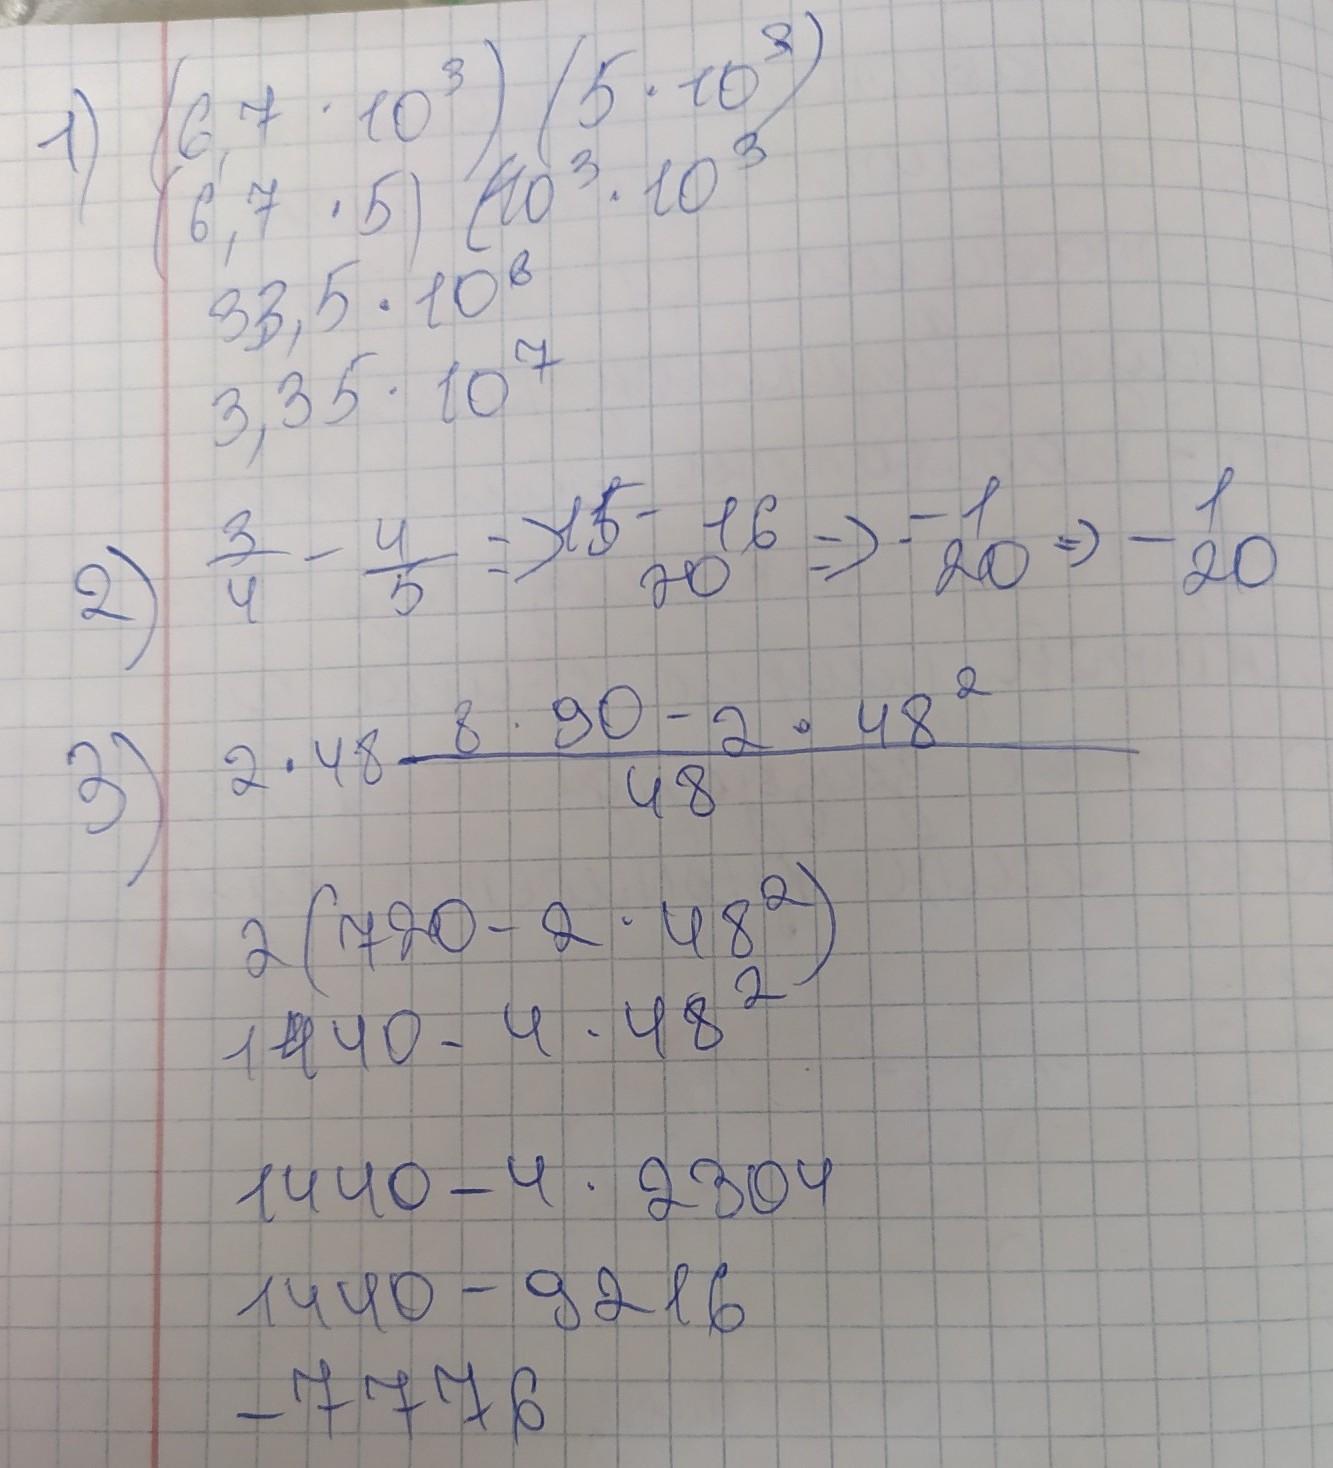 1) (6,7 · 10³) (5 · 10³)
(6,7 · 5) (10³ · 10³
33,5 · 10⁶
3,35 · 10⁷
2) 3/4 - 4/5 => 15 - 16/20 => -1/20 => - 1/20
3) 2 · 48 (8 · 90 - 2 · 48²)/48
2(720 - 2 · 48²)
1440 - 4 · 48²
1440 - 4 · 2304
1440 - 9216
-7776